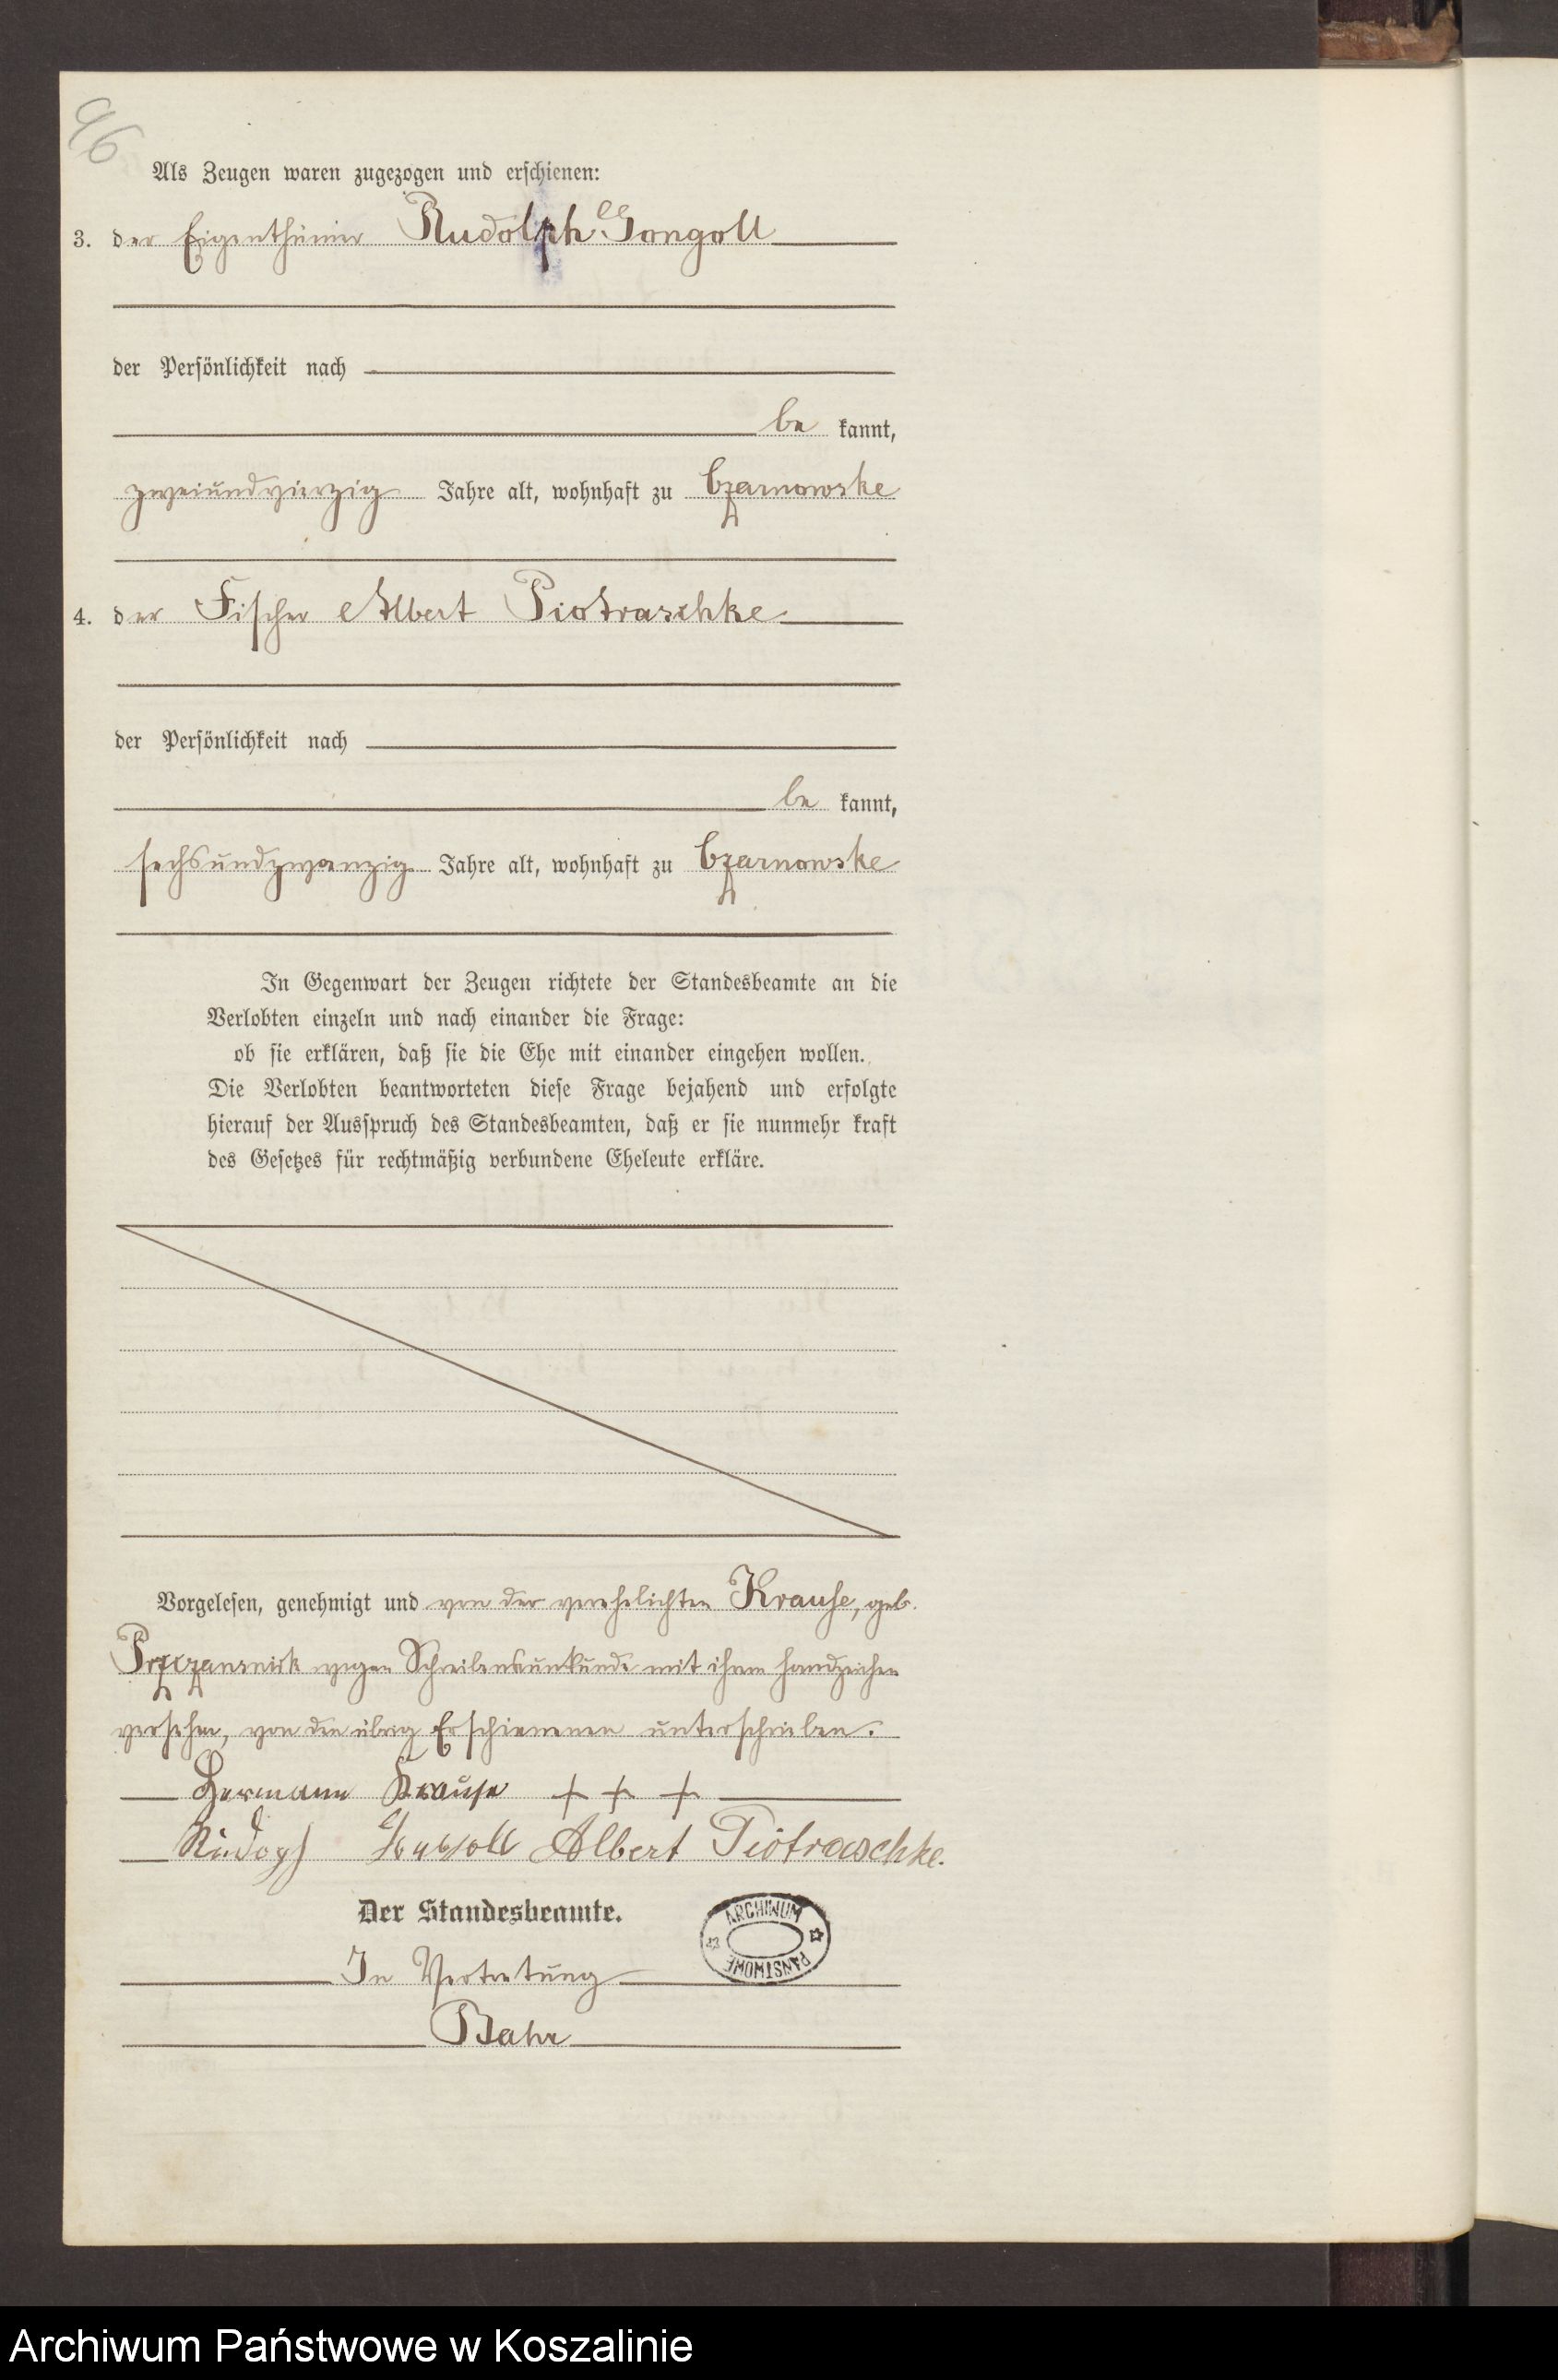 96
Als Zeugen waren zugezogen und erschienen:
3. der Eigenthümer Rudolph Gongoll
der Persönlichkeit nach
be kannt,
zweiundvierzig Jahre alt, wohnhaft zu Czarnowske
4. der Fischer Albert Piotraschke
der Persönlichkeit nach
be kannt,
sechsundzwanzig Jahre alt, wohnhaft zu Czarnowske
In Gegenwart der Zeugen richtete der Standesbeamte an die
Verlobten einzeln und nach einander die Frage:
ob sie erklären, daß sie die Ehe mit einander eingehen wollen.
Die Verlobten beantworteten diese Frage bejahend und erfolgte
hierauf der Ausspruch des Standesbeamten, daß er sie nunmehr kraft
des Gesetzes für rechtmäßig verbundene Eheleute erkläre.
Vorgelesen, genehmigt und von der verehelichten Krause, geb.
wegen Schreibensunkunde mit ihrem Handzeichen
versehen, von den übrig Erschienenen unterschrieben.
Hermann Krause + + +
Albert Piotraschke.
Der Standesbeamte.
ARCHIWUM PAŃSTWOWE
In Vertretung
Bahr
Archiwum Państwowe w Koszalinie